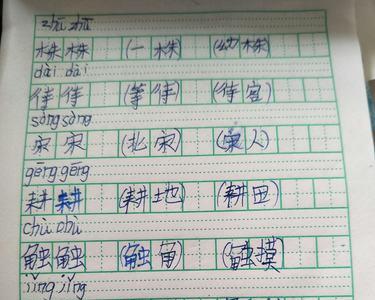 zhū zhū
株 株 (一 株) (幼 株)
dài dài
待 待 (等 待) (待 客)
sòng sòng
宋 宋 (北 宋) (宋 人)
gēng gēng
耕 耕 (耕 地) (耕 田)
chù chù
触 触 (触 角) (触 摸)
jǐng jǐng